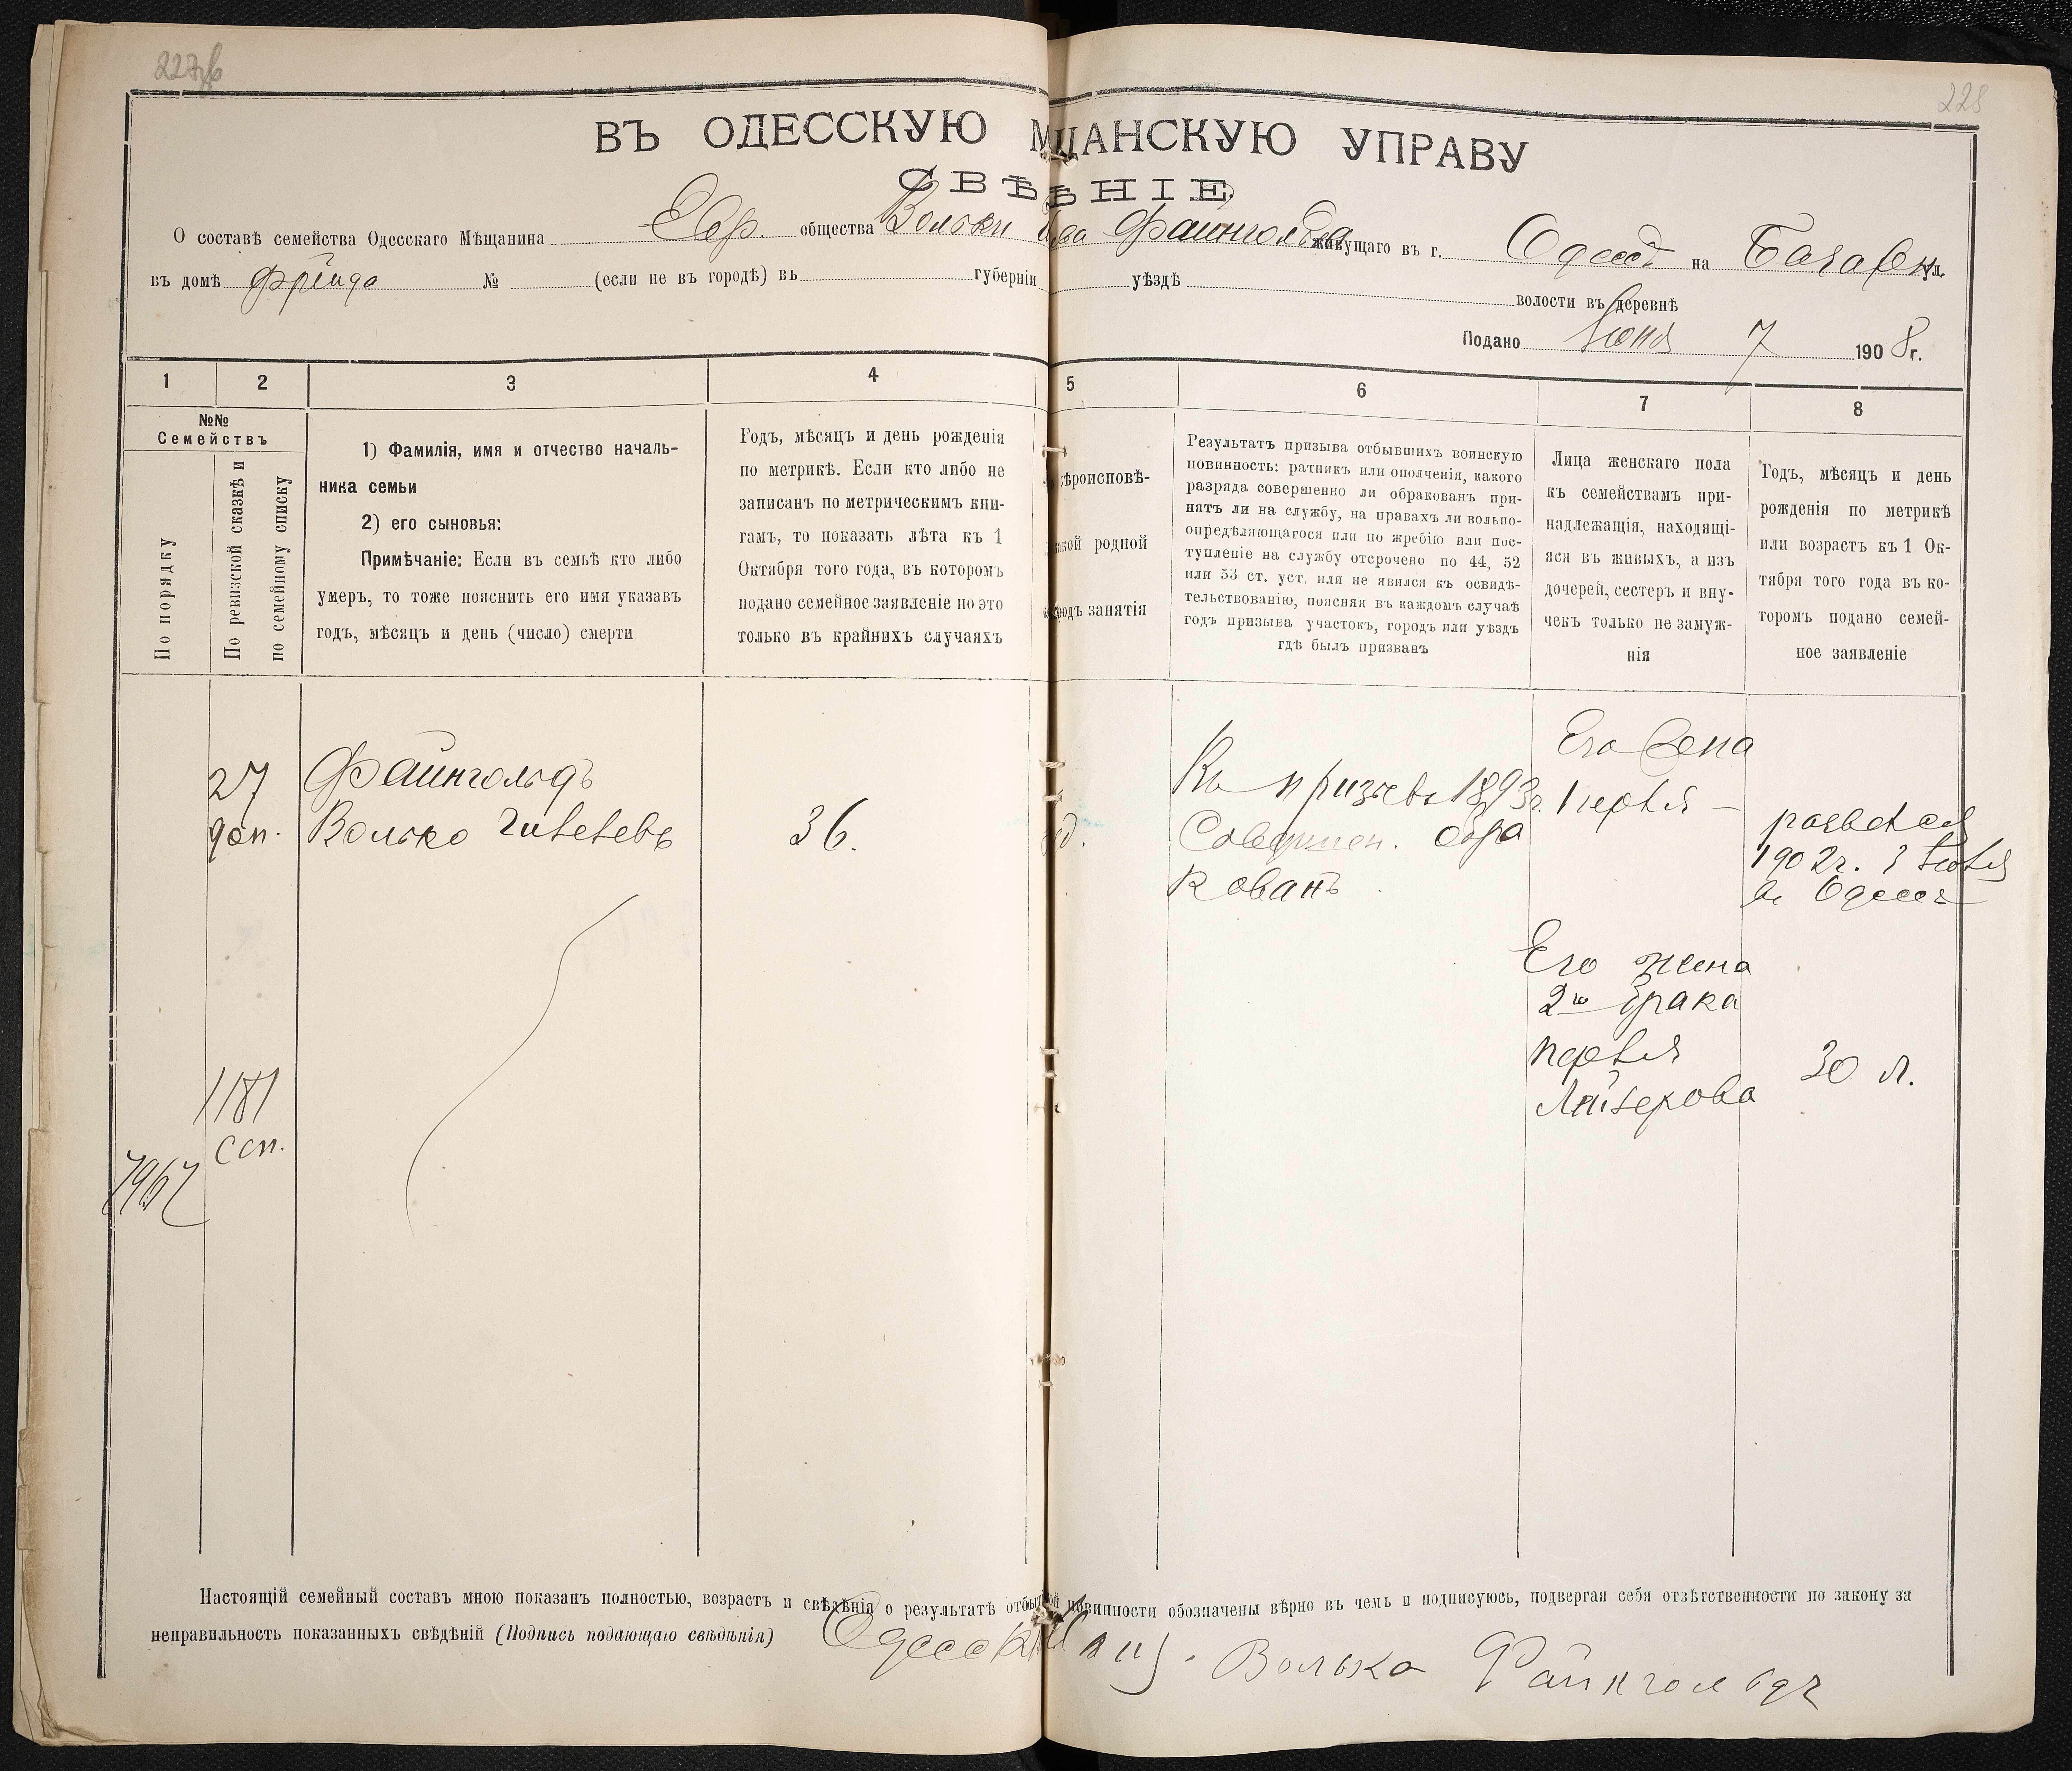 228
ВЪ ОДЕССКУЮ М ЩАНСКУЮ УПРАВУ
СВѢ НІЕ
О составѣ семейства Одесскаго Мѣщанина Евр. общества Вольки Файнгольда живущаго въ г. Одессѣ на Базарн. ул.
въ домѣ Фрейда № (если не въ городѣ) въ губерніи уѣздѣ
волости въ деревнѣ
Подано Іюня 7 1908 г.
1 2 3 4 5 6 7 8
№№
Семействъ
По порядку
По ревизской сказкѣ и
по семейному списку
1) Фамилія, имя и отчество началь-
ника семьи
2) его сыновья:
Примѣчаніе: Если въ семьѣ кто либо
умеръ, то тоже пояснить его имя указавъ
годъ, мѣсяцъ и день (число) смерти
Годъ, мѣсяцъ и день рожденія
по метрикѣ. Если кто либо не
записанъ по метрическимъ кни-
гамъ, то показать лѣта къ 1
Октября того года, въ которомъ
подано семейное заявленіе но это
только въ крайнихъ случаяхъ
ѣроисповѣ-
родной
занятія
Результатъ призыва отбывшихъ воинскую
повинность: ратникъ или ополченія, какого
разряда совершенно ли обракованъ при-
нятъ ли на службу, на правахъ ли вольно-
опредѣляющагося или по жребію или пос-
тупленіе на службу отсрочено по 44, 52
или 53 ст. уст. или не явился къ освидѣ-
тельствованію, поясняя въ каждомъ случаѣ
годъ призыва участокъ, городъ или уѣздъ
гдѣ былъ призванъ
Лица женскаго пола
къ семействамъ при-
надлежащія, находящі-
яся въ живыхъ, а изъ
дочерей, сестеръ и вну-
чекъ только не замуж-
нія
Годъ, мѣсяцъ и день
рожденія по метрикѣ
или возрастъ къ 1 Ок-
тября того года въ ко-
торомъ подано семей-
ное заявленіе
27
доп.
Файнгольдъ
Волько
36.
Къ призыву 1893г.
Совершен. обра
кованъ
Его жена
развелся
1902г.
въ Одессѣ
Его жена
2го брака
Лейзерова
30 л.
1181
ссп.
7967
Настоящій семейный составъ мною показанъ полностью, возрастъ и свѣдѣнія о результатѣ отбытой повинности обозначены вѣрно въ чемъ и подписуюсь, подвергая себя отвѣтственности по закону за
неправильность показанныхъ свѣдѣній (Подпись подающаго свѣдѣнія) Одесскій Волька Файнгольдъ